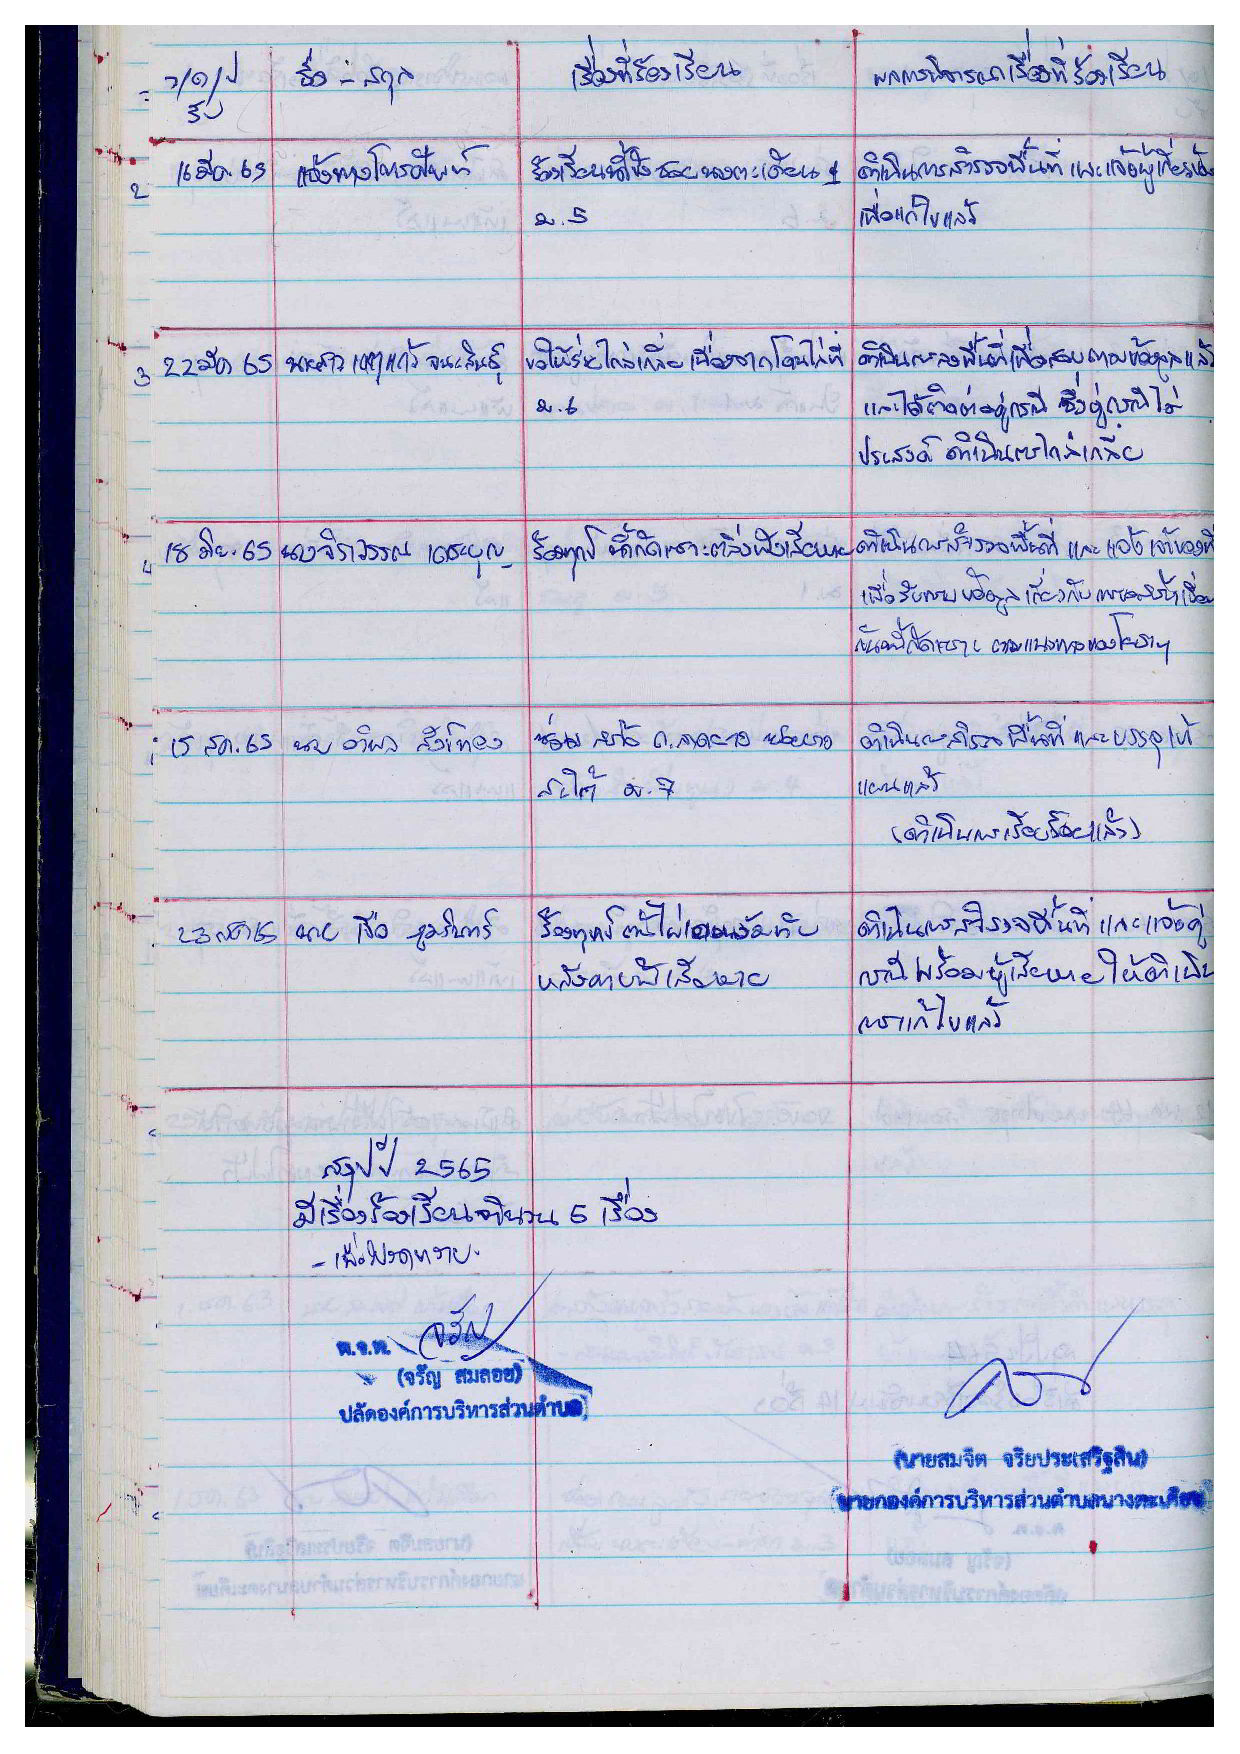 ว/ด/ป ชื่อ - สกุล เรื่องที่ร้องเรียน ผลการพิจารณาเรื่องที่ร้องเรียน
รับ
2 16 มีค. 65 แจ้งทางโทรศัพท์ ร้องเรียน ซอยบางตะเคียน 1 ดำเนินการสำรวจพื้นที่ และแจ้งผู้เกี่ยวข้อง
ม.5 เพื่อแก้ไขแล้ว
3 22 มีค 65 นางสาว ขอให้ช่วยไกล่เกลี่ย เนื่องจากโดนไล่ที่ ดำเนินการลงพื้นที่เพื่อสอบถามข้อมูลแล้ว
ม.6 และได้ติดต่อคู่กรณี ซึ่งคู่กรณีไม่
ประสงค์ ดำเนินการไกล่เกลี่ย
4 18 มิย. 65 นางจิราวรรณ ร้องทุกข์ น้ำกัดเซาะตลิ่งพังเสียหาย ดำเนินการสำรวจพื้นที่ และ แจ้ง เจ้าของที่
เพื่อรับทราบข้อมูล เกี่ยวกับการก่อสร้างเขื่อน
กันน้ำกัดเซาะ ตามแนวทางของโยธาฯ
15 สค. 65 นาย อำพล สังข์ทอง ซ่อม
ม.7 ดำเนินการสำรวจพื้นที่ และบรรจุเข้า
แผนแล้ว
(ดำเนินการเรียบร้อยแล้ว)
23 สค 65 นาย ร้องทุกข์ ต้นไผ่ ทับ ดำเนินการสำรวจพื้นที่ และแจ้งคู่
หลังคาบ้านเสียหาย กรณี พร้อมผู้เสียหาย ให้ดำเนิน
การแก้ไขแล้ว
สรุปปี 2565
มีเรื่องร้องเรียนจำนวน 6 เรื่อง
- เพื่อโปรดทราบ
จ.อ.ต. จรัญ
(จรัญ สมลออ)
ปลัดองค์การบริหารส่วนตำบล
(นายสมจิต จริยประเสริฐสิน)
นายกองค์การบริหารส่วนตำบลบางตะเคียน